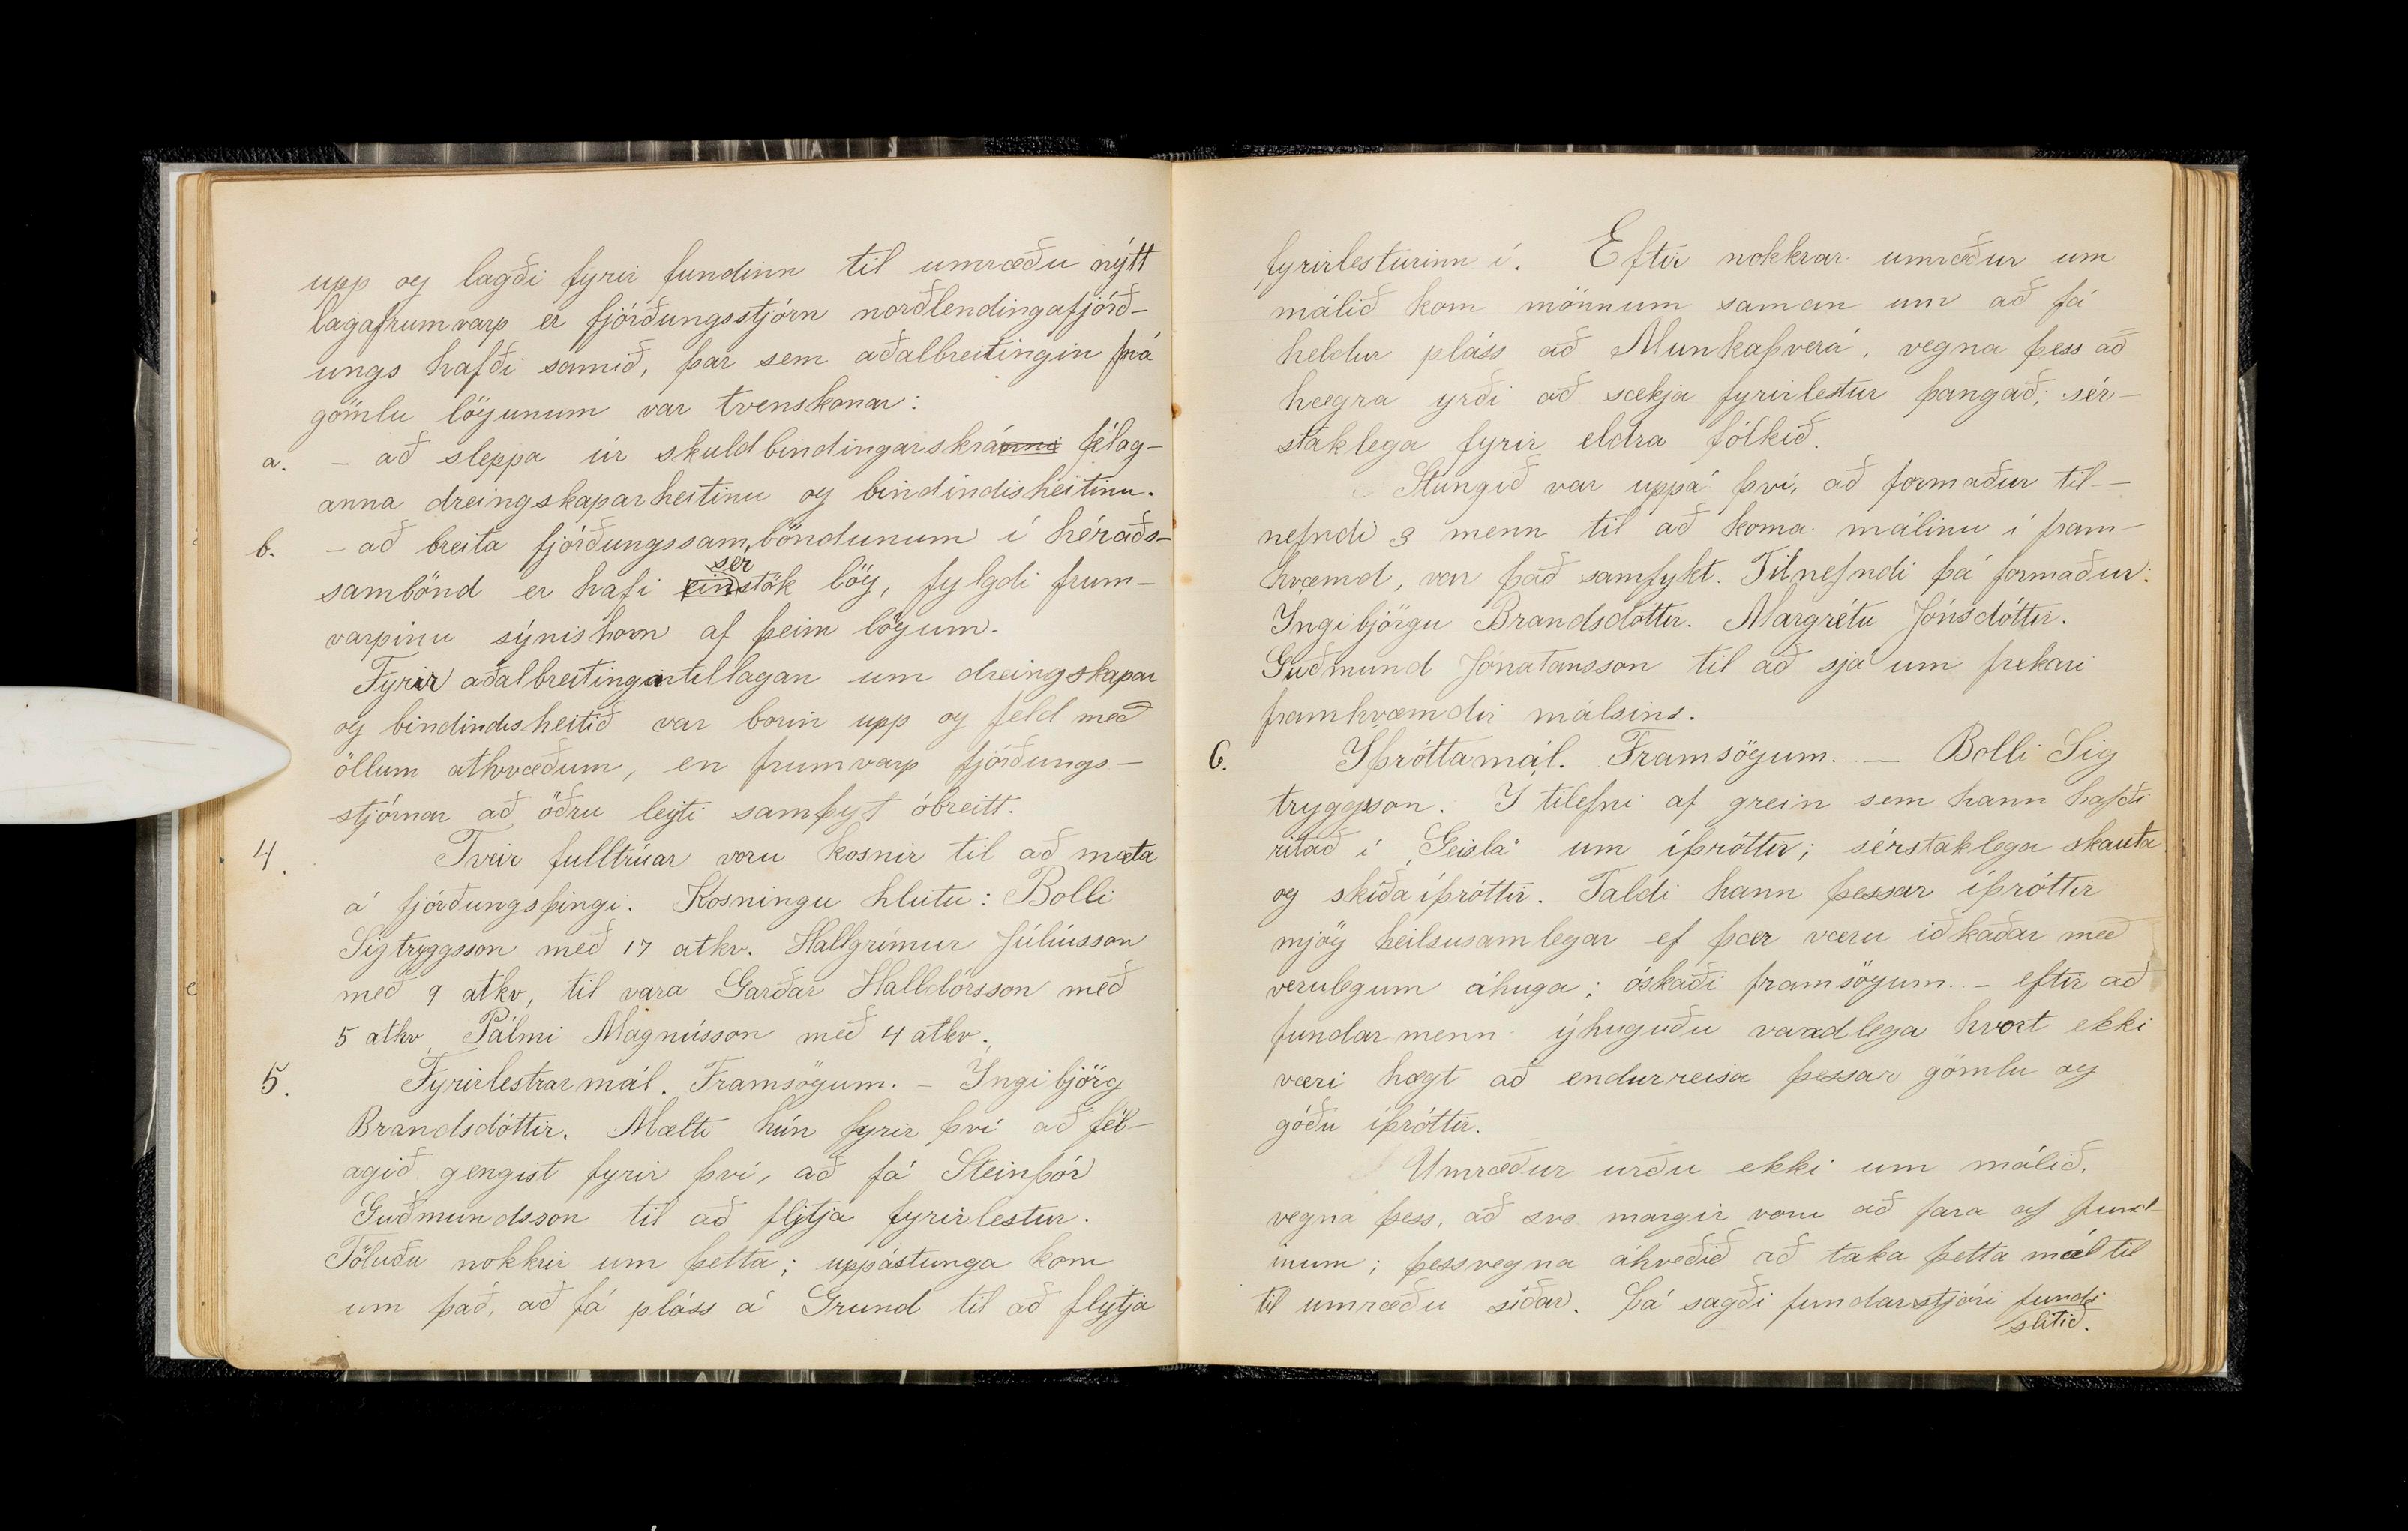 upp og lagði fyrir fundinn til umræðu nýtt
lagafrumvarp er fjórðungsstjórn norðlendingafjórð-
ungs hafði samið, þar sem aðalbreitingin frá
gömlu lögunum var tvenskonar:
a. - að sleppa úr skuldbindingarskránni félag-
anna dreingskaparheitinu og bindindisheitinu.
b. - að breita fjórðungssamböndunum í héraðs-
sér
sambönd er hafi einstök lög, fylgdi frum-
varpinu sýnishorn af þeim lögum.
Fyrir aðalbreitingartillagan um dreingskapar
og bindindisheitið var borin upp og feld með
öllum atkvæðum, en frumvarp fjórðungs-
stjórnar að öðru leyti samþyt óbreitt.
4. Tveir fulltrúar voru kosnir til að mæta
á fjórðungsþingi. Kosningu hlutu: Bolli
Sigtryggsson með 17 atkv. Hallgrímur Júlíusson
með 9 atkv, til vara Garðar Halldórsson með
5 atkv, Pálmi Magnússon með 4 atkv.
5. Fyrirlestrarmál. Framsögum. - Ingibjörg
Brandsdóttir. Mælti hún fyrir því að fél-
agið gengist fyrir því, að fá Steinþór
Guðmundsson til að flytja fyrirlestur.
Töluðu nokkrir um þetta; uppástunga kom
um það, að fá pláss á Grund til að flytja
fyrirlesturinn í. Eftir nokkrar umræður um
málið kom mönnum saman um að fá
heldur pláss að Munkaþverá, vegna þess að
hægra yrði að sækja fyrirlestur þangað; sér-
staklega fyrir eldra fólkið.
Stungið var uppá því, að formaður til-
nefndi 3 menn til að koma málinu í fram-
kvæmd, var það samþykt. Tilnefndi þá formaður:
Ingibjörgu Brandsdóttir. Margrétu Jónsdóttir.
Guðmund Jónatansson til að sjá um frekari
framkvæmdir málsins.
6. Íþróttamál. Framsögum. - Bolli Sig
tryggsson. Í tilefni af grein sem hann hafði
ritað í „Geisla" um íþróttir; sérstaklega skauta
og skíðaíþróttir. Taldi hann þessar íþróttir
mjög heilsusamlegar ef þær væru iðkaðar með
verulegum áhuga; óskaði framsögum. - eftir að
fundarmenn íhuguðu vandlega hvort ekki
væri hægt að endurreisa þessar gömlu og
góðu íþróttir.
Umræður urðu ekki um málið,
vegna þess, að svo margir voru að fara af fund-
inum; þessvegna ákveðið að taka þetta mál til
til umræðu síðar. Þá sagði fundarstjóri fundi
slitið.